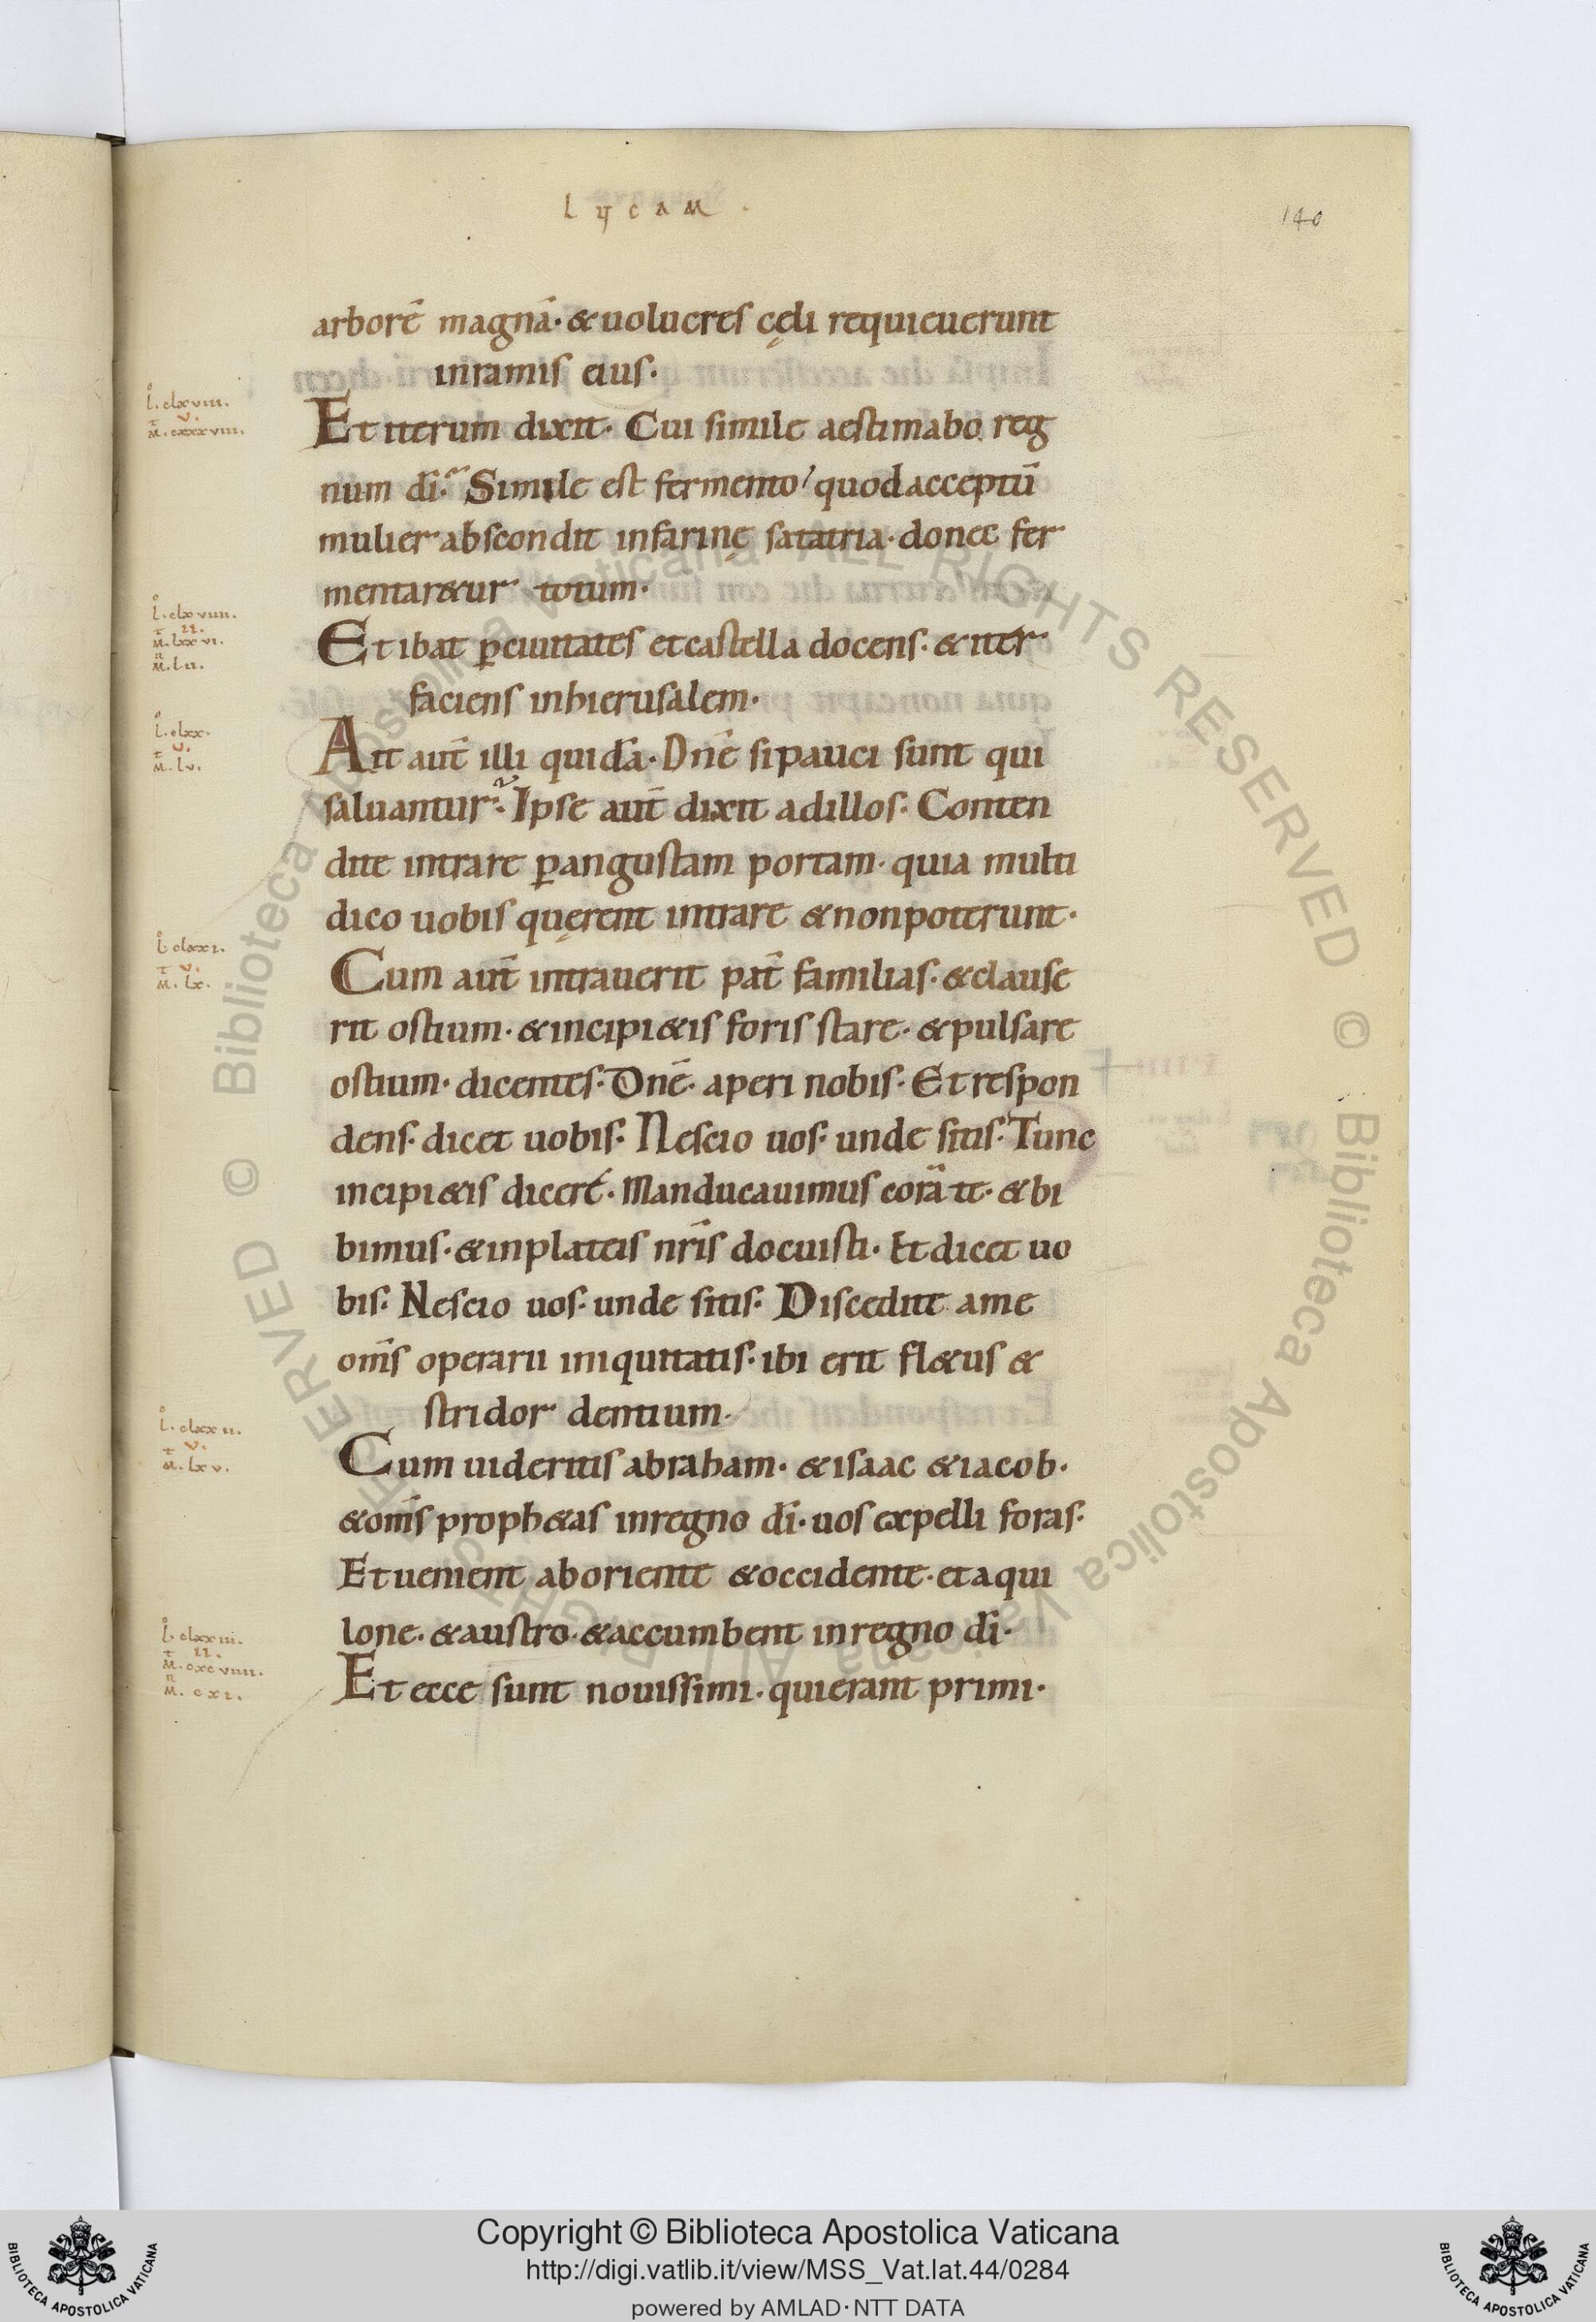 LUCAM.
140
arborē magnā· & uolucres cęli requieuerunt
in ramis eius·
l. clxviii.
v.
M. cxxxviii.
Et iterum dixit· Cui simile aestimabo reg
num dī· Simile est fermento quod acceptū
mulier abscondit in farinę sata tria· donec fer
mentar&ur totum·
l. clxviiii.
ii.
M. lxxvi.
M. lii.
Et ibat ꝑ ciuitates et castella docens· & iter
faciens in hierusalem·
l. clxx.
v.
M. lv.
Ait aut̄ illi quidā· Dn̄e si pauci sunt qui
saluantur· Ipse aut̄ dixit ad illos· Conten
dite intrare ꝑ angustam portam· quia multi
dico uobis quęrent intrare & non poterunt·
l. clxxi.
v.
M. lx.
Cum aut̄ intrauerit pat̄ familias· & clause
rit ostium· & incipi&is foris stare· & pulsare
ostium· dicentes· Dn̄e· aperi nobis· Et respon
dens· dicet uobis· Nescio uos· unde sitis· Tunc
incipi&is dicere· Manducauimus corā te· & bi
bimus· & in plateis nr̄is docuisti· Et dicet uo
bis· Nescio uos· unde sitis· Discedite a me
om̄s operarii iniquitatis· ibi erit fl&us &
stridor dentium·
l. clxxii.
v.
M. lxv.
Cum uideritis abraham· & isaac & iacob·
& om̄s proph&as in regno dī· uos expelli foras·
Et uenient ab oriente & occidente· et aqui
lone· & austro· & accumbent in regno dī·
l. clxxiii.
ii.
M. cxcviiii.
M. cxi.
Et ecce sunt nouissimi· qui erant primi·
© Biblioteca Apostolica Vaticana ALL RIGHTS RESERVED © Biblioteca Apostolica Vaticana ALL RIGHTS RESERVED
Copyright © Biblioteca Apostolica Vaticana
http://digi.vatlib.it/view/MSS_Vat.lat.44/0284
powered by AMLAD·NTT DATA
BIBLIOTECA APOSTOLICA VATICANA
BIBLIOTECA APOSTOLICA VATICANA